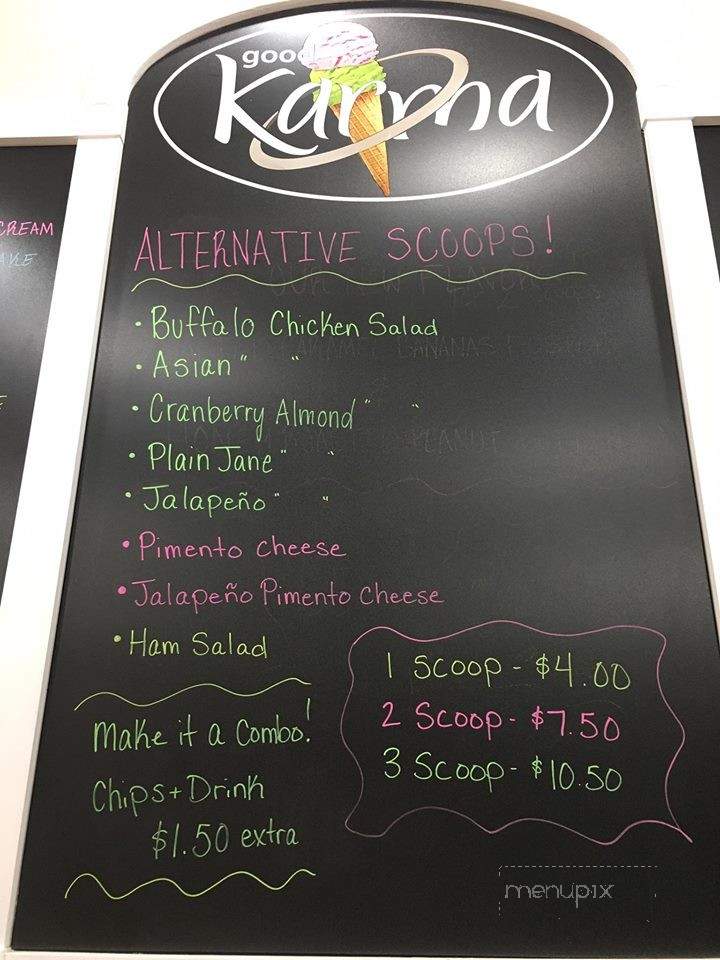 good
Karma
ALTERNATIVE SCOOPS!
• Buffalo Chicken Salad
• Asian " "
• Cranberry Almond " "
• Plain Jane " "
• Jalapeño " "
• Pimento cheese
• Jalapeño Pimento Cheese
• Ham Salad
1 Scoop - $4.00
2 Scoop - $7.50
3 Scoop - $10.50
Make it a Combo!
Chips + Drink
$1.50 extra
CREAM
menupix